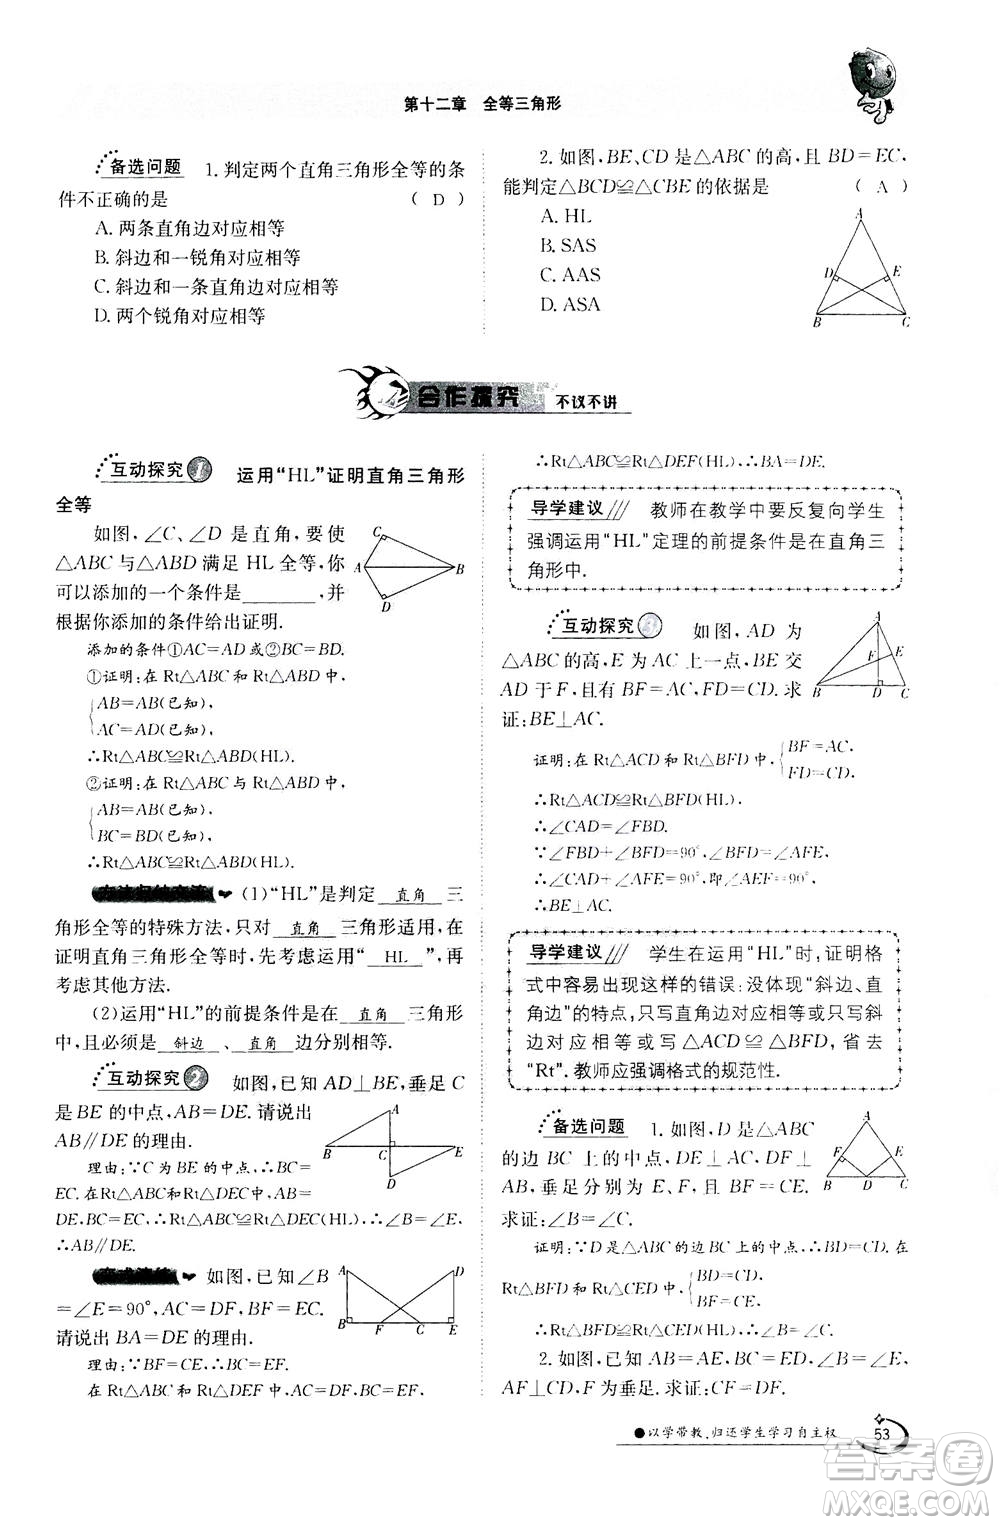 第十二章　全等三角形
备选问题　1. 判定两个直角三角形全等的条
件不正确的是　（ D ）
A. 两条直角边对应相等
B. 斜边和一锐角对应相等
C. 斜边和一条直角边对应相等
D. 两个锐角对应相等
2. 如图, BE、CD 是△ABC 的高, 且 BD=EC,
能判定△BCD≌△CBE 的依据是　（ A ）
A. HL
B. SAS
C. AAS
D. ASA
A
D
E
B
C
合作探究　不议不讲
互动探究 1　运用“HL”证明直角三角形
全等
如图, ∠C、∠D 是直角, 要使
△ABC 与△ABD 满足 HL 全等, 你
可以添加的一个条件是________, 并
根据你添加的条件给出证明.
C
A
B
D
添加的条件①AC=AD或②BC=BD.
①证明: 在 Rt△ABC 和 Rt△ABD 中,
AB=AB(已知),
AC=AD(已知),
∴Rt△ABC≌Rt△ABD(HL)
②证明: 在 Rt△ABC 与 Rt△ABD 中,
AB=AB(已知),
BC=BD(已知),
∴Rt△ABC≌Rt△ABD(HL).
(1)“HL”是判定 直角 三
角形全等的特殊方法, 只对 直角 三角形适用, 在
证明直角三角形全等时, 先考虑运用“ HL ”, 再
考虑其他方法.
(2)运用“HL”的前提条件是在 直角 三角形
中, 且必须是 斜边 、 直角 边分别相等.
互动探究 2　如图, 已知 AD⊥BE, 垂足 C
是 BE 的中点, AB=DE. 请说出
AB∥DE 的理由.
A
B
C
E
D
理由: ∵C 为 BE 的中点, ∴BC=
EC. 在 Rt△ABC和Rt△DEC 中, ∵AB=
DE, BC=EC, ∴Rt△ABC≌Rt△DEC(HL), ∴∠B=∠E,
∴AB∥DE.
如图, 已知∠B
=∠E=90°, AC=DF, BF=EC.
请说出 BA=DE 的理由.
A
D
B
F
C
E
理由: ∵BF=CE, ∴BC=EF.
在 Rt△ABC 和 Rt△DEF 中, ∵AC=DF, BC=EF,
∴Rt△ABC≌Rt△DEF(HL), ∴BA=DE.
导学建议///　教师在教学中要反复向学生
强调运用“HL”定理的前提条件是在直角三
角形中.
互动探究 3　如图, AD 为
△ABC的高, E 为 AC 上一点, BE 交
AD 于 F, 且有 BF=AC, FD=CD. 求
证: BE⊥AC.
A
F
E
B
D
C
证明: 在 Rt△ACD 和 Rt△BFD 中, BF=AC,
FD=CD.
∴Rt△ACD≌Rt△BFD(HL),
∴∠CAD=∠FBD.
∵∠FBD+∠BFD=90°, ∠BFD=∠AFE,
∴∠CAD+∠AFE=90°, 即∠AEF=90°,
∴BE⊥AC.
导学建议///　学生在运用“HL”时, 证明格
式中容易出现这样的错误: 没体现“斜边、直
角边”的特点, 只写直角边对应相等或只写斜
边对应相等或写△ACD≌△BFD, 省去
“Rt”. 教师应强调格式的规范性.
备选问题　1. 如图, D 是△ABC
的边 BC 上的中点, DE⊥AC, DF⊥
AB, 垂足分别为 E、F, 且 BF=CE.
求证: ∠B=∠C.
A
F
E
B
D
C
证明: ∵D 是△ABC 的边 BC 上的中点, ∴BD=CD. 在
Rt△BFD 和 Rt△CED 中, BD=CD,
BF=CE,
∴Rt△BFD≌Rt△CED(HL) ∴∠B=∠C.
2. 如图, 已知 AB=AE, BC=ED, ∠B=∠E,
AF⊥CD, F 为垂足. 求证: CF=DF.
●以学带教、归还学生学习自主权
53
答案卷
MXQE.COM